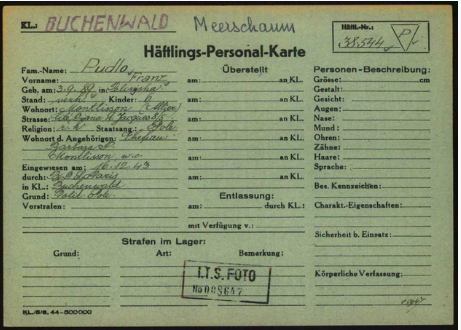 KL.: BUCHENWALD Meerschaum Häftl.-Nr.:
38.544 P
Häftlings-Personal-Karte
Fam.-Name: Pudlo
Vorname: Franz
Geb. am: 3.9.89 in
Stand: verh. Kinder: 6
Wohnort:
Strasse:
Religion: r.k. Staatsang.: Pole
Wohnort d. Angehörigen: Ehefrau:
Barbara P.
w.o.
Eingewiesen am: 16.12.43
durch:
in KL.: Buchenwald
Grund: Polit. Pole
Vorstrafen:
Überstellt
am: an KL.
am: an KL.
am: an KL.
am: an KL.
am: an KL.
am: an KL.
Entlassung:
am: durch KL.:
mit Verfügung v.:
Personen-Beschreibung:
Grösse: cm
Gestalt:
Gesicht:
Augen:
Nase:
Mund:
Ohren:
Zähne:
Haare:
Sprache:
Bes. Kennzeichen:
Charakt.-Eigenschaften:
Sicherheit b. Einsatz:
Körperliche Verfassung:
Strafen im Lager:
Grund: Art: Bemerkung:
I.T.S. FOTO
No 008647
KL./5/6. 44-500000